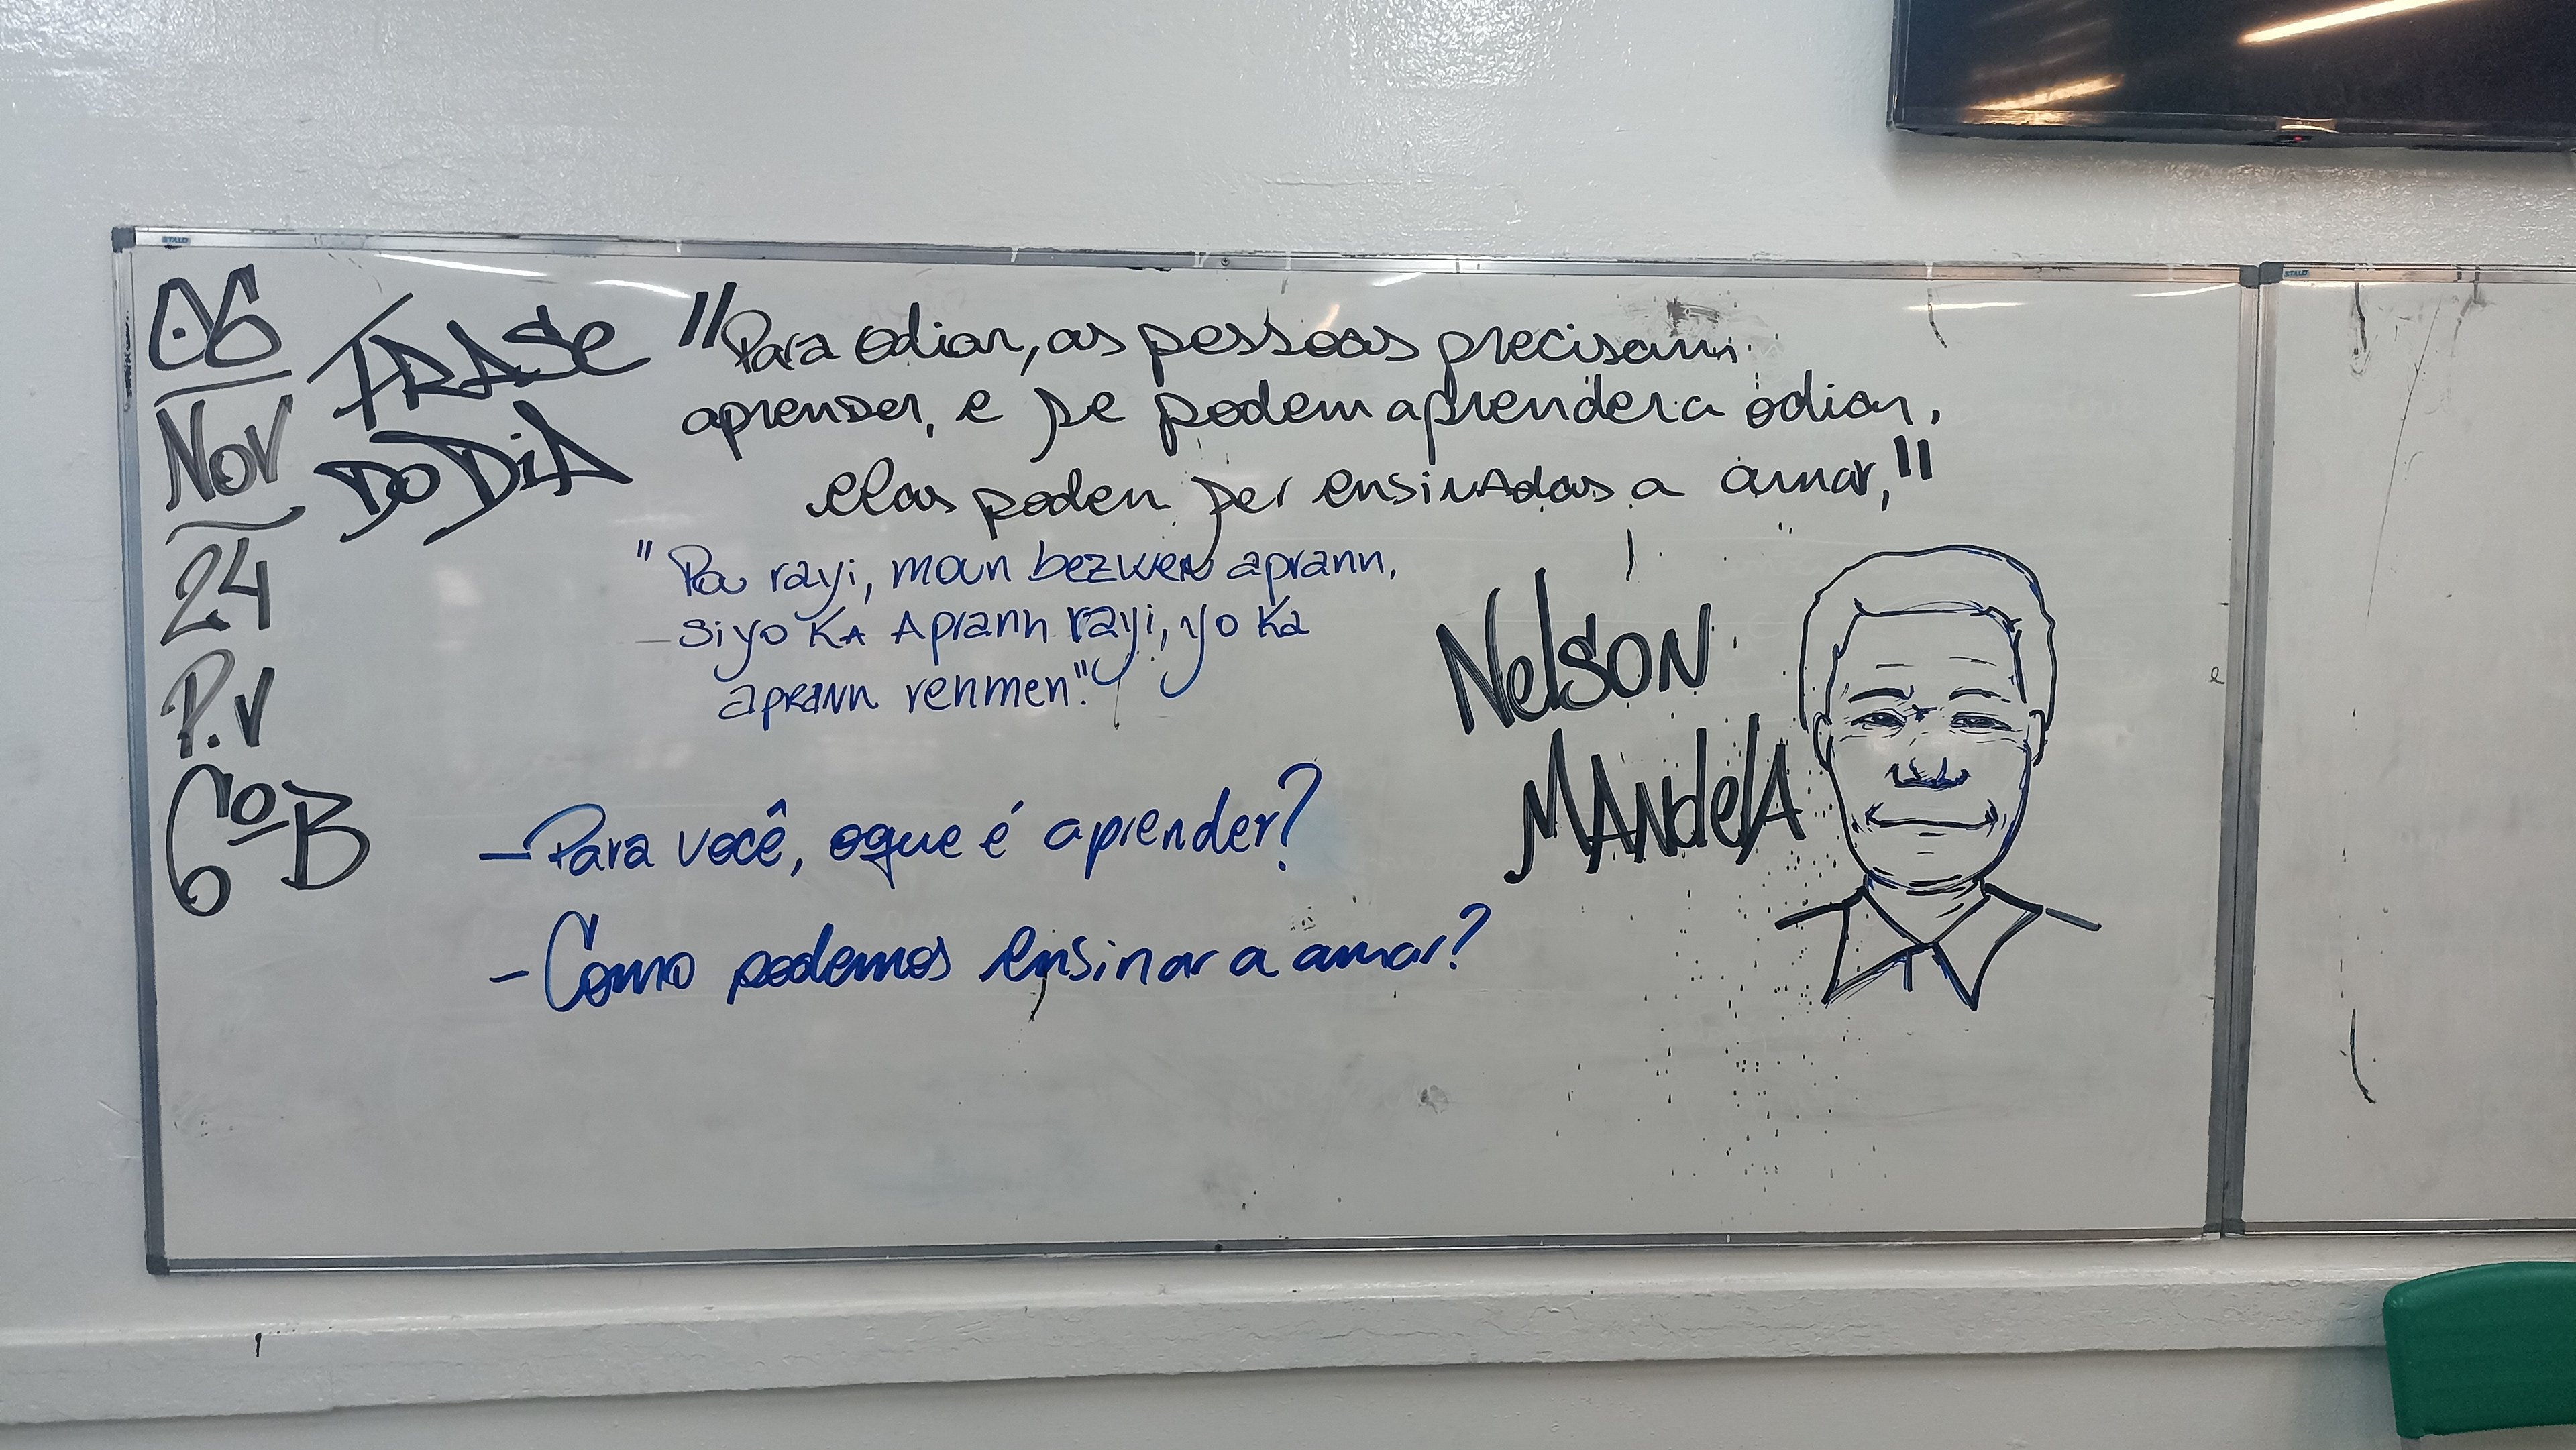 06
Nov
24
P.V
6º B
FRASE
DO DiA
"Para odiar, as pessoas precisam
aprender, e se podem aprender a odiar,
elas podem ser ensinadas a amar,"
"Pou rayi, moun bezwen aprann,
si yo KA Aprann rayi, yo Ka
aprann renmen".
Nelson
MANdelA
- Para você, oque é aprender?
- Como podemos ensinar a amar?
STALO
STALO